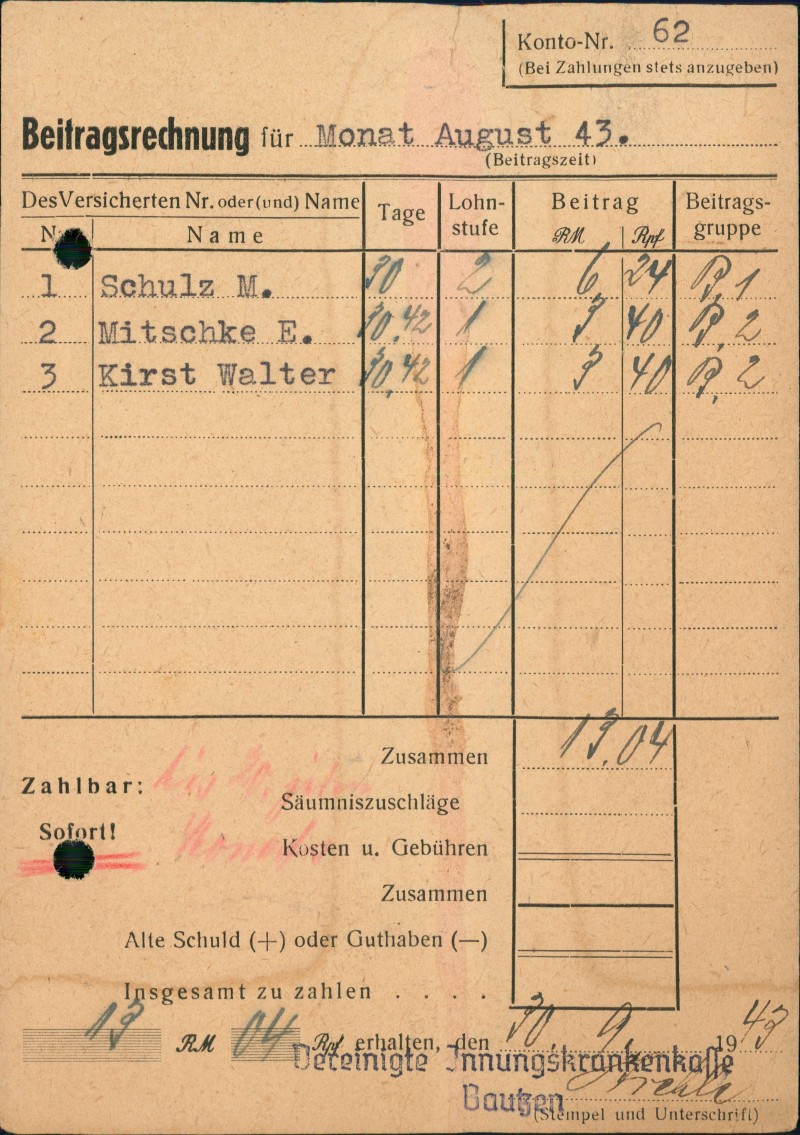 Konto-Nr. 62
(Bei Zahlungen stets anzugeben)
Beitragsrechnung für Monat August 43.
(Beitragszeit)
Des Versicherten Nr. oder (und) Name Tage Lohn-stufe Beitrag Beitrags-gruppe
Name RM Rpf
1 Schulz M. 30 2 6 24 B, 1
2 Mitschke E. 30,42 1 3 40 B, 2
3 Kirst Walter 30,42 1 3 40 B, 2
Zusammen 13.04
Zahlbar: bis 20. jeden
Säumniszuschläge
Sofort! Monats
Kosten u. Gebühren
Zusammen
Alte Schuld (+) oder Guthaben (—)
Insgesamt zu zahlen . . . .
13 RM 04 Rpf erhalten, den 30. 9. 1943
Vereinigte Innungskrankenkasse
Bautzen
(Stempel und Unterschrift)